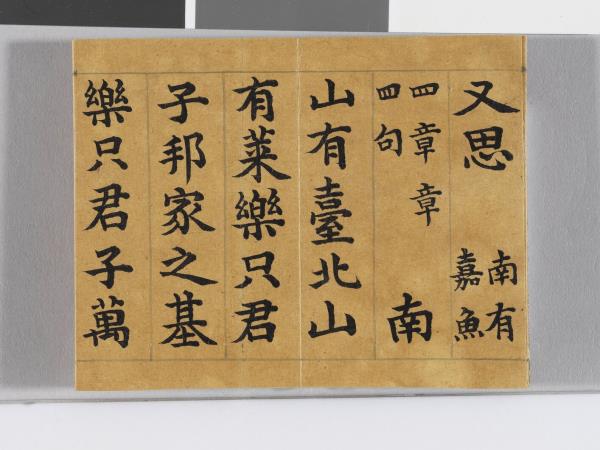 又思南有嘉魚
四章章四句南
山有臺北山
有萊樂只君
子邦家之基
樂只君子萬